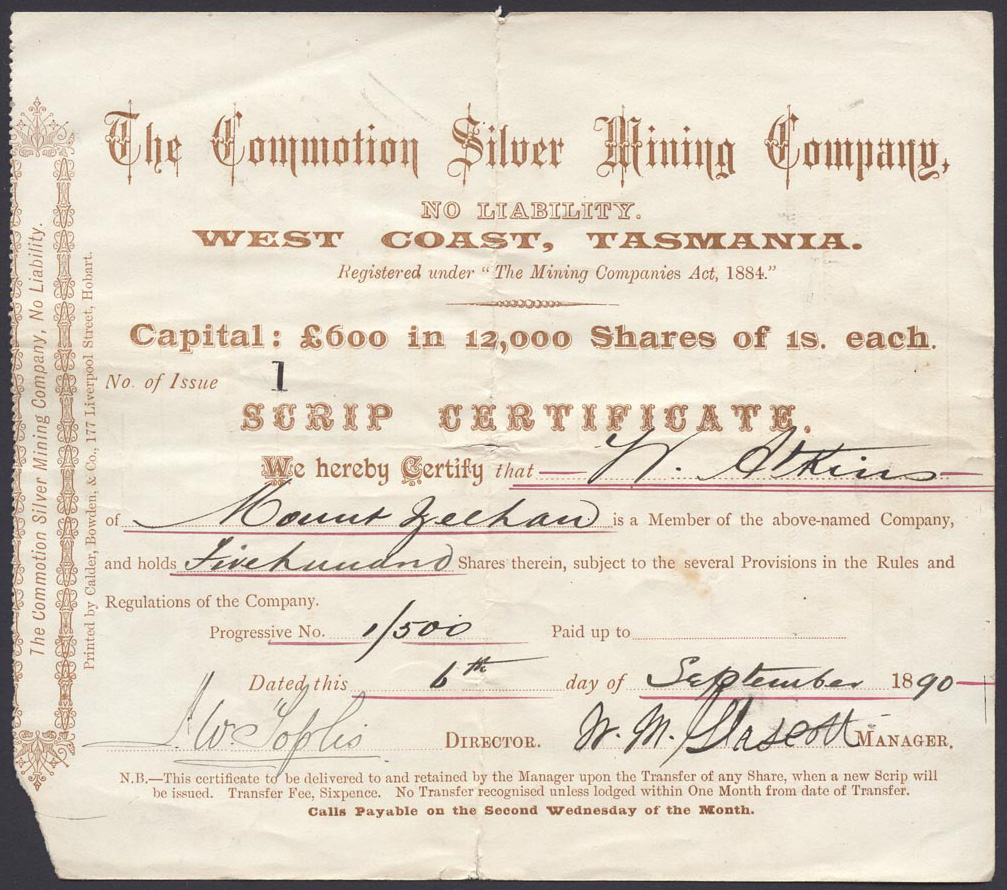 The Commotion Silver Mining Company,
NO LIABILITY.
WEST COAST, TASMANIA.
Registered under "The Mining Companies Act, 1884."
Capital: £600 in 12,000 Shares of 1s. each.
No. of Issue 1
SCRIP CERTIFICATE.
We hereby Certify that W. Atkins
of Mount Zeehan is a Member of the above-named Company,
and holds Five hundred Shares therein, subject to the several Provisions in the Rules and
Regulations of the Company.
Progressive No. 1/500 Paid up to
Dated this 6th day of September 1890
J. W. Toplis DIRECTOR. W. M. Gascott MANAGER.
N.B.—This certificate to be delivered to and retained by the Manager upon the Transfer of any Share, when a new Scrip will
be issued. Transfer Fee, Sixpence. No Transfer recognised unless lodged within One Month from date of Transfer.
Calls Payable on the Second Wednesday of the Month.
The Commotion Silver Mining Company, No Liability.
Printed by Calder, Bowden, & Co., 177 Liverpool Street, Hobart.